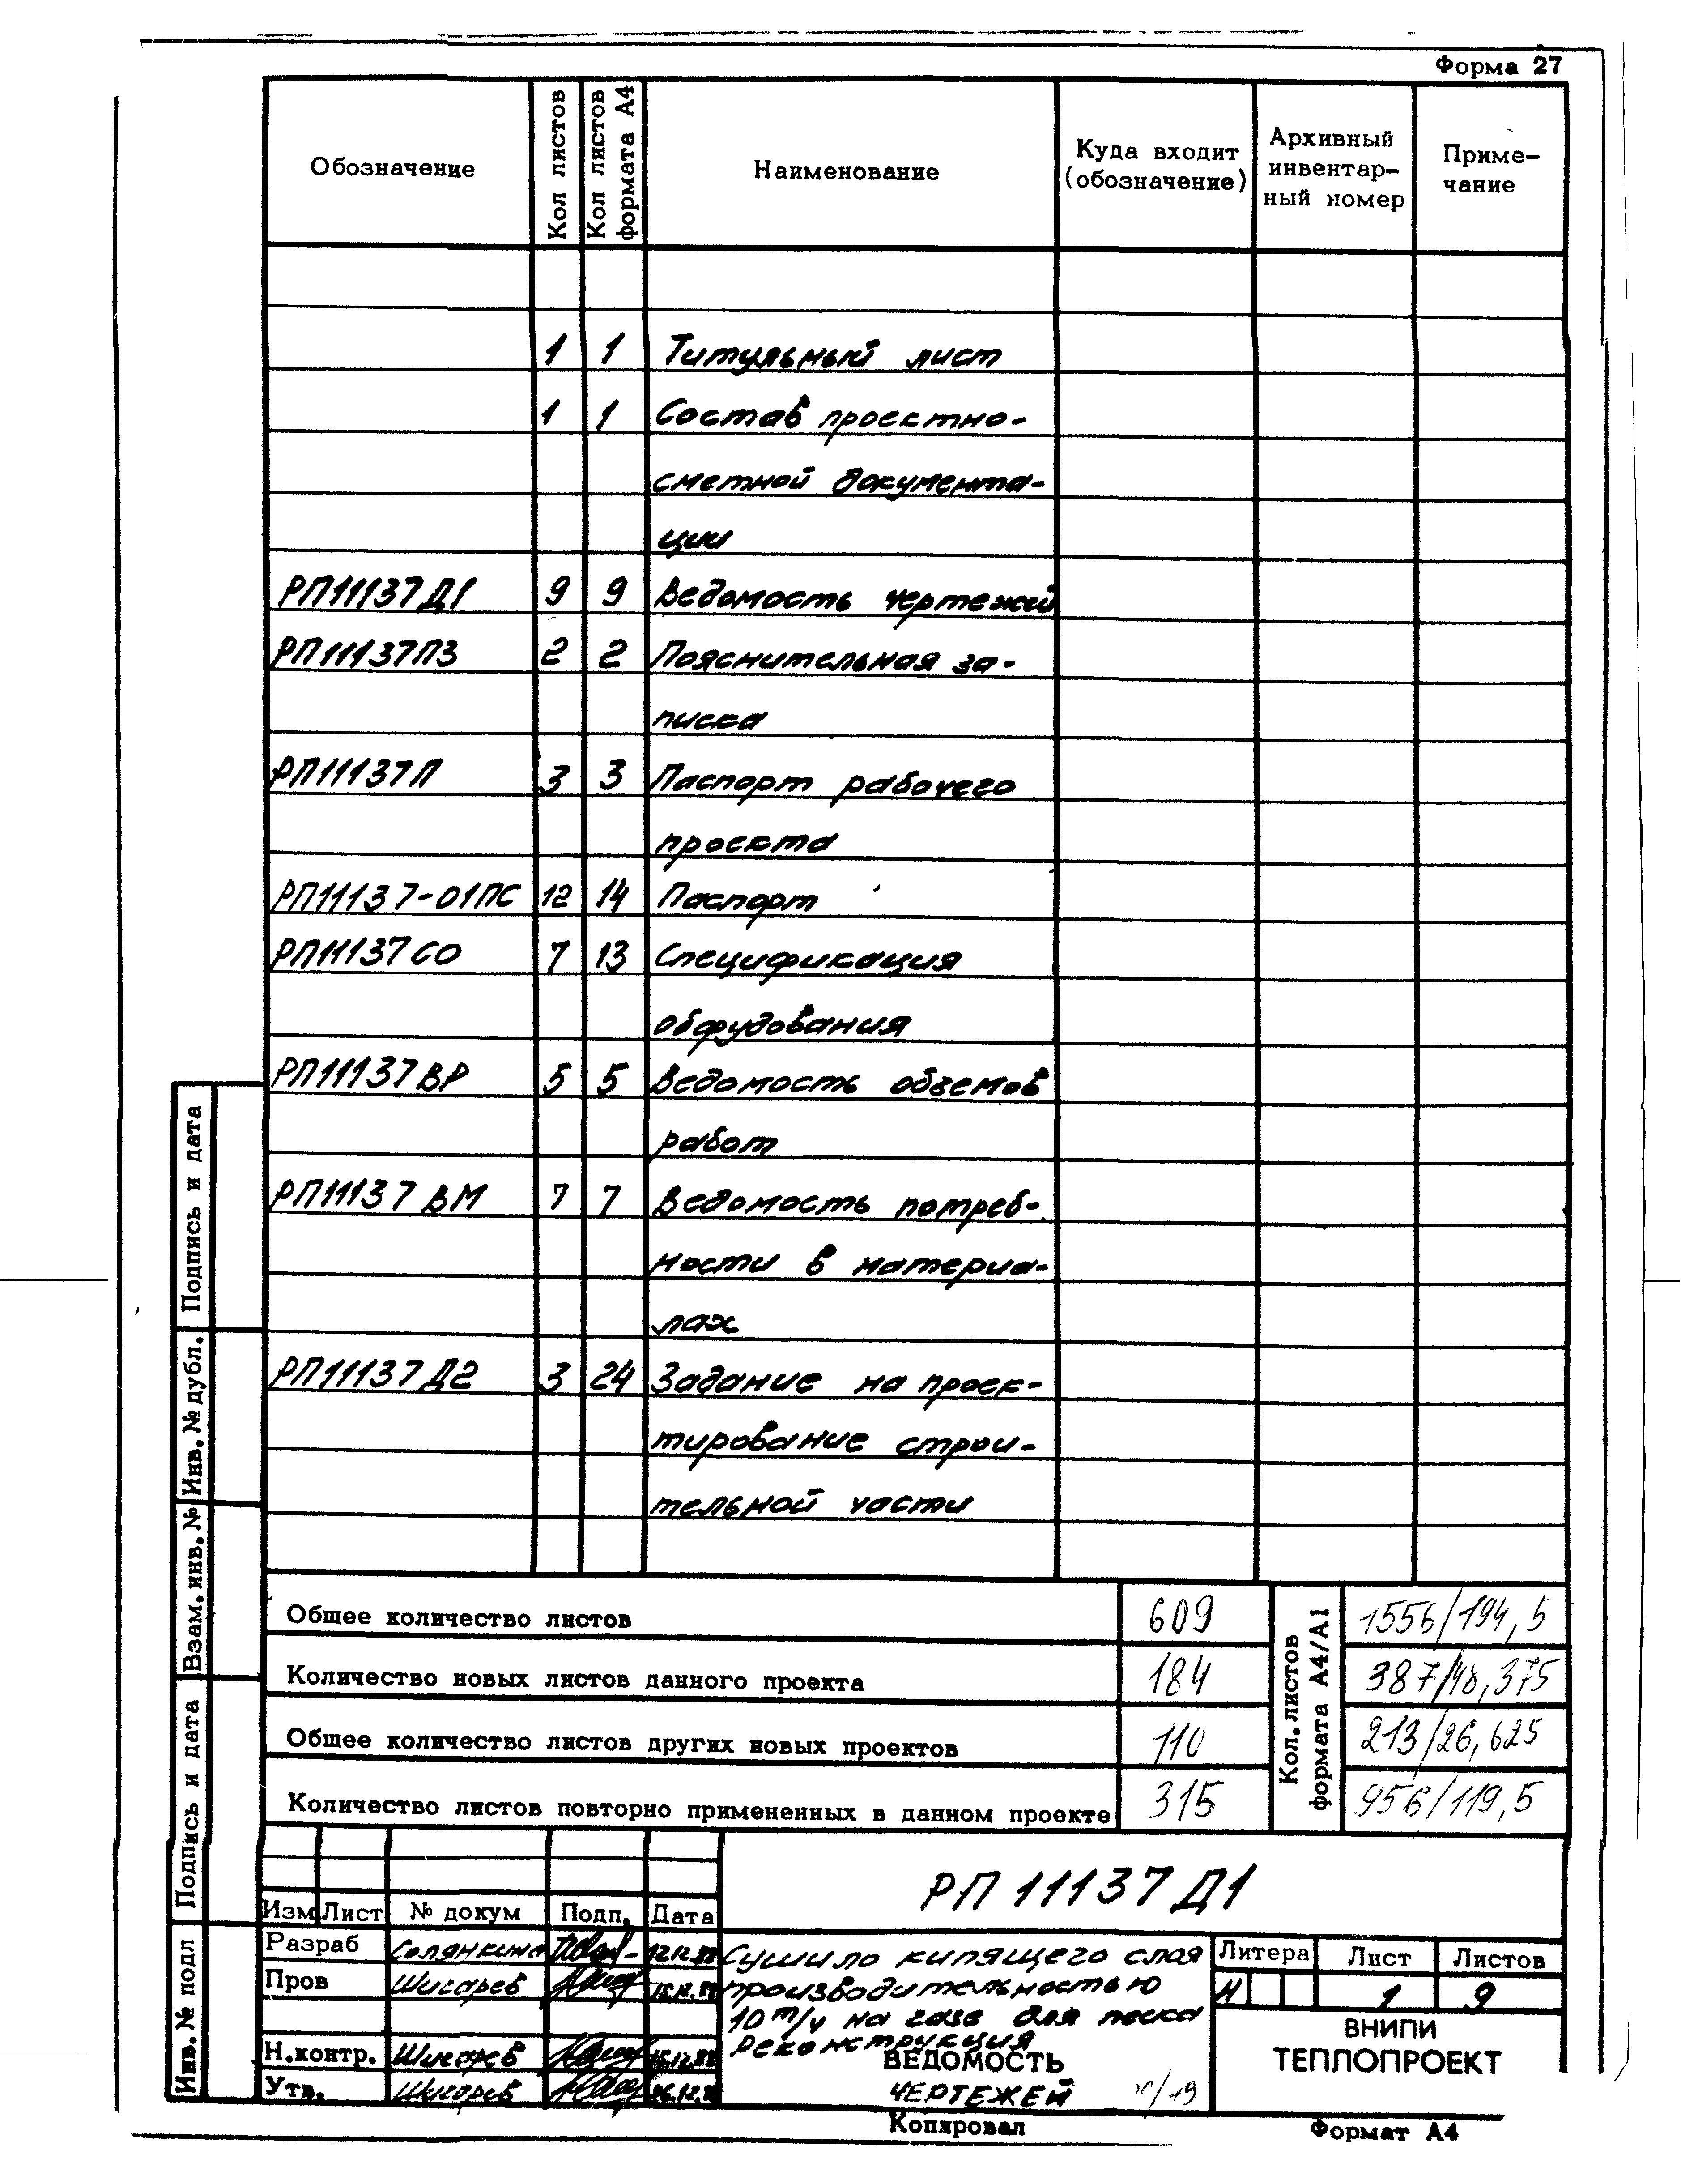 Форма 27
Обозначение Кол листов Кол листов формата А4 Наименование Куда входит (обозначение) Архивный инвентар-ный номер Приме-чание
1 1 Титульный лист
1 1 Состав проектно-
сметной документа-
ции
РП11137Д1 9 9 Ведомость чертежей
РП11137ПЗ 2 2 Пояснительная за-
писка
РП11137П 3 3 Паспорт рабочего
проекта
РП11137-01ПС 12 14 Паспорт
РП11137СО 7 13 Спецификация
оборудования
РП11137ВР 5 5 Ведомость объемов
работ
РП11137ВМ 7 7 Ведомость потреб-
ности в материа-
лах
РП11137Д2 3 24 Задание на проек-
тирование строи-
тельной части
Кол.листов формата А4/А1
Общее количество листов 609 1556/194,5
Количество новых листов данного проекта 184 387/48,375
Общее количество листов других новых проектов 110 213/26,625
Количество листов повторно примененных в данном проекте 315 956/119,5
Подпись и дата
Инв.№ дубл.
Взам.инв.№
Подпись и дата
Инв.№ подл
РП 11137 Д1
Изм Лист № докум Подп. Дата
Разраб Солянкина 12.12.88
Пров Шигарев
Н.контр. Шигарев
Утв. Шигарев
Сушило кипящего слоя
производительностью
10 т/ч на газе для песка
Реконструкция
ВЕДОМОСТЬ
ЧЕРТЕЖЕЙ
Литера Лист Листов
И 1 9
ВНИПИ
ТЕПЛОПРОЕКТ
Копировал
Формат А4